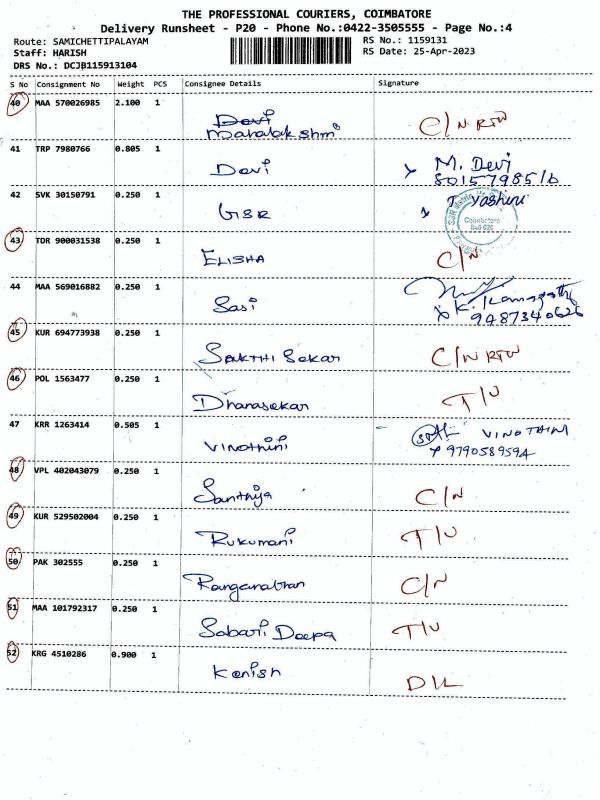 THE PROFESSIONAL COURIERS, COIMBATORE
Delivery Runsheet - P20 - Phone No.:0422-3505555 - Page No.:4
Route: SAMICHETTIPALAYAM RS No.: 1159131
Staff: HARISH RS Date: 25-Apr-2023
DRS No.: DCJB115913104
S No Consignment No Weight PCS Consignee Details Signature
40 MAA 570026985 2.100 1 Devi
Mahalakshmi C/N RTW
41 TRP 7980766 0.805 1 Devi M. Devi
42 SVK 30150791 0.250 1 GSR T. Yashini
Coimbatore
43 TDR 900031538 0.250 1 ELISHA C/N
44 MAA 569016882 0.250 1 Sasi
9487340626
45 KUR 694773938 0.250 1 SAKTHI Sekar C/N RTW
46 POL 1563477 0.250 1 Dhanasekar T/U
47 KRR 1263414 0.505 1 Vinothini VINOTHINI
9790589594
48 VPL 402043079 0.250 1 Santhiya C/N
49 KUR 529502004 0.250 1 Rukumani T/U
50 PAK 302555 0.250 1 Ranganathan C/N
51 MAA 101792317 0.250 1 Sabari Deepa T/U
52 KRG 4510286 0.900 1 Kanish D/L